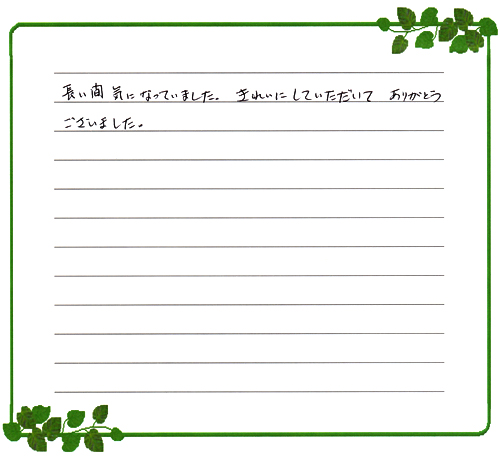 長い間 気になっていました。 きれいにしていただいて ありがとう
ございました。